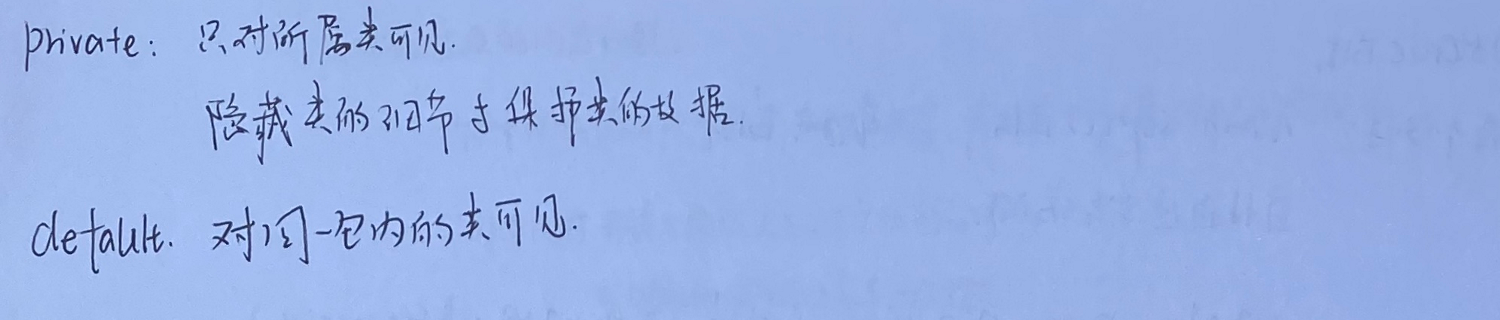 private: 只对所属类可见.
隐藏类的细节与保护类的数据.
default. 对同一包内的类可见.